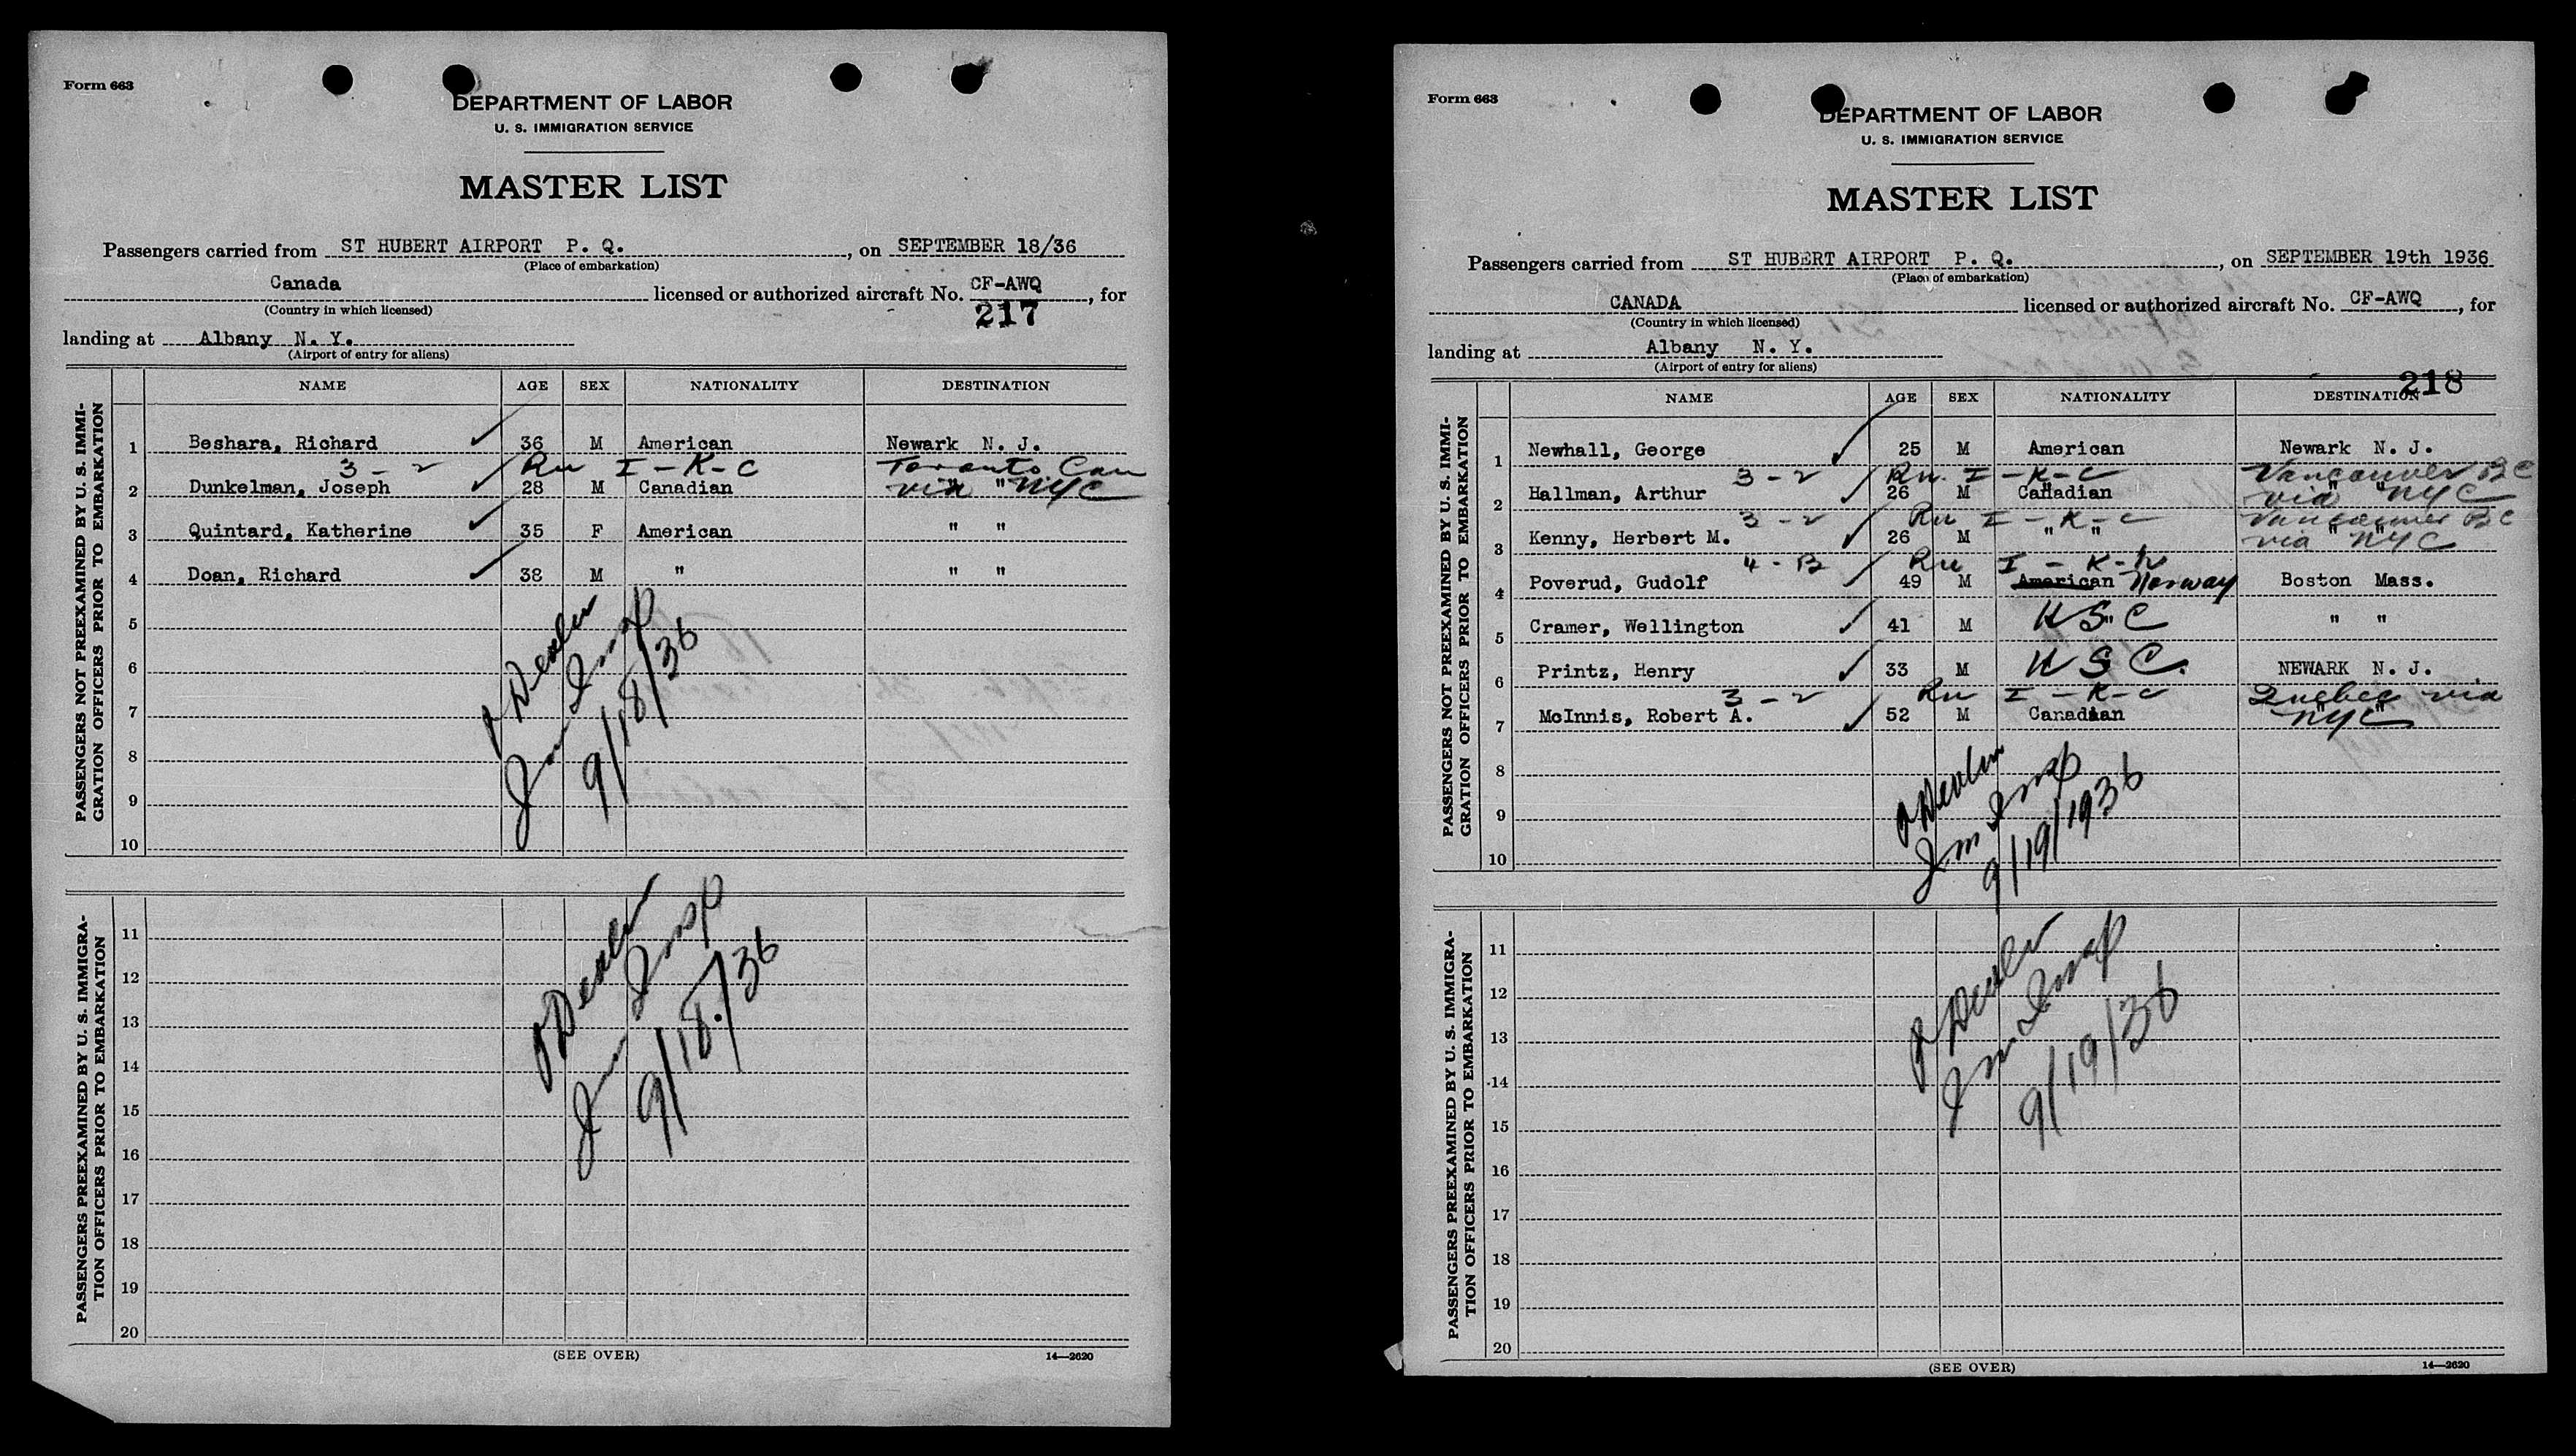 Form 663
DEPARTMENT OF LABOR
U. S. IMMIGRATION SERVICE
MASTER LIST
Passengers carried from ST HUBERT AIRPORT P. Q., on SEPTEMBER 18/36
(Place of embarkation)
Canada licensed or authorized aircraft No. CF-AWQ, for
(Country in which licensed)
217
landing at Albany N. Y.
(Airport of entry for aliens)
PASSENGERS NOT PREEXAMINED BY U. S. IMMI-
GRATION OFFICERS PRIOR TO EMBARKATION
NAME AGE SEX NATIONALITY DESTINATION
1 Beshara, Richard 36 M American Newark N. J.
3 - 2 I - K - C Toronto Can
2 Dunkelman, Joseph 28 M Canadian " " via NYC
3 Quintard, Katherine 35 F American " "
4 Doan, Richard 38 M " " "
5
6
7
8
9
10
Imm Insp
9/18/36
PASSENGERS PREEXAMINED BY U. S. IMMIGRA-
TION OFFICERS PRIOR TO EMBARKATION
11
12
13
14
15
16
17
18
19
20
Imm Insp
9/18/36
(SEE OVER) 14—2620
Form 663
DEPARTMENT OF LABOR
U. S. IMMIGRATION SERVICE
MASTER LIST
Passengers carried from ST HUBERT AIRPORT P. Q., on SEPTEMBER 19th 1936
(Place of embarkation)
CANADA licensed or authorized aircraft No. CF-AWQ, for
(Country in which licensed)
landing at Albany N. Y.
(Airport of entry for aliens)
218
PASSENGERS NOT PREEXAMINED BY U. S. IMMI-
GRATION OFFICERS PRIOR TO EMBARKATION
NAME AGE SEX NATIONALITY DESTINATION
1 Newhall, George 25 M American Newark N. J.
3 - 2 I - K - C Vancouver BC
2 Hallman, Arthur 26 M Canadian " " via NYC
3 - 2 I - K - C Vancouver BC
3 Kenny, Herbert M. 26 M " " " " via NYC
4 - B I - K - N
4 Poverud, Gudolf 49 M American Norway Boston Mass.
5 Cramer, Wellington 41 M " USC " "
6 Printz, Henry 33 M USC. NEWARK N. J.
3 - 2 I - K - C Quebec via
7 McInnis, Robert A. 52 M Canadian " NYC
8
9
10
Imm Insp
9/19/1936
PASSENGERS PREEXAMINED BY U. S. IMMIGRA-
TION OFFICERS PRIOR TO EMBARKATION
11
12
13
14
15
16
17
18
19
20
Imm Insp
9/19/36
(SEE OVER) 14—2620